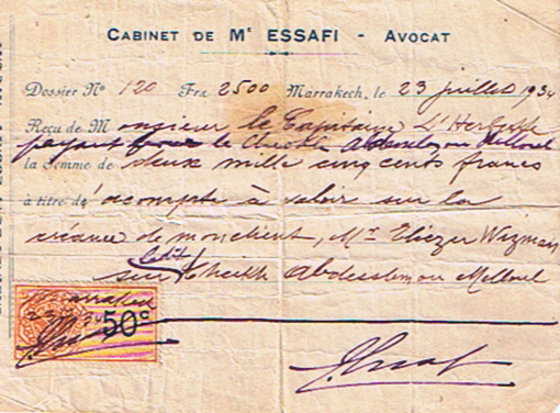 CABINET DE Mᵉ ESSAFI - AVOCAT
Dossier Nº 120 Frs 2500 Marrakech, le 23 juillet 1934
Reçu de Monsieur le Capitaine L'Herbette
payant pour le Cheikh Abdesslem ou Melloul
la somme de deux mille cinq cents francs
à titre d'acompte à valoir sur la
créance de mon client, Mr Eliezer Wizman
sur ledit Cheikh Abdesslem ou Melloul
Marrakech
23
50c